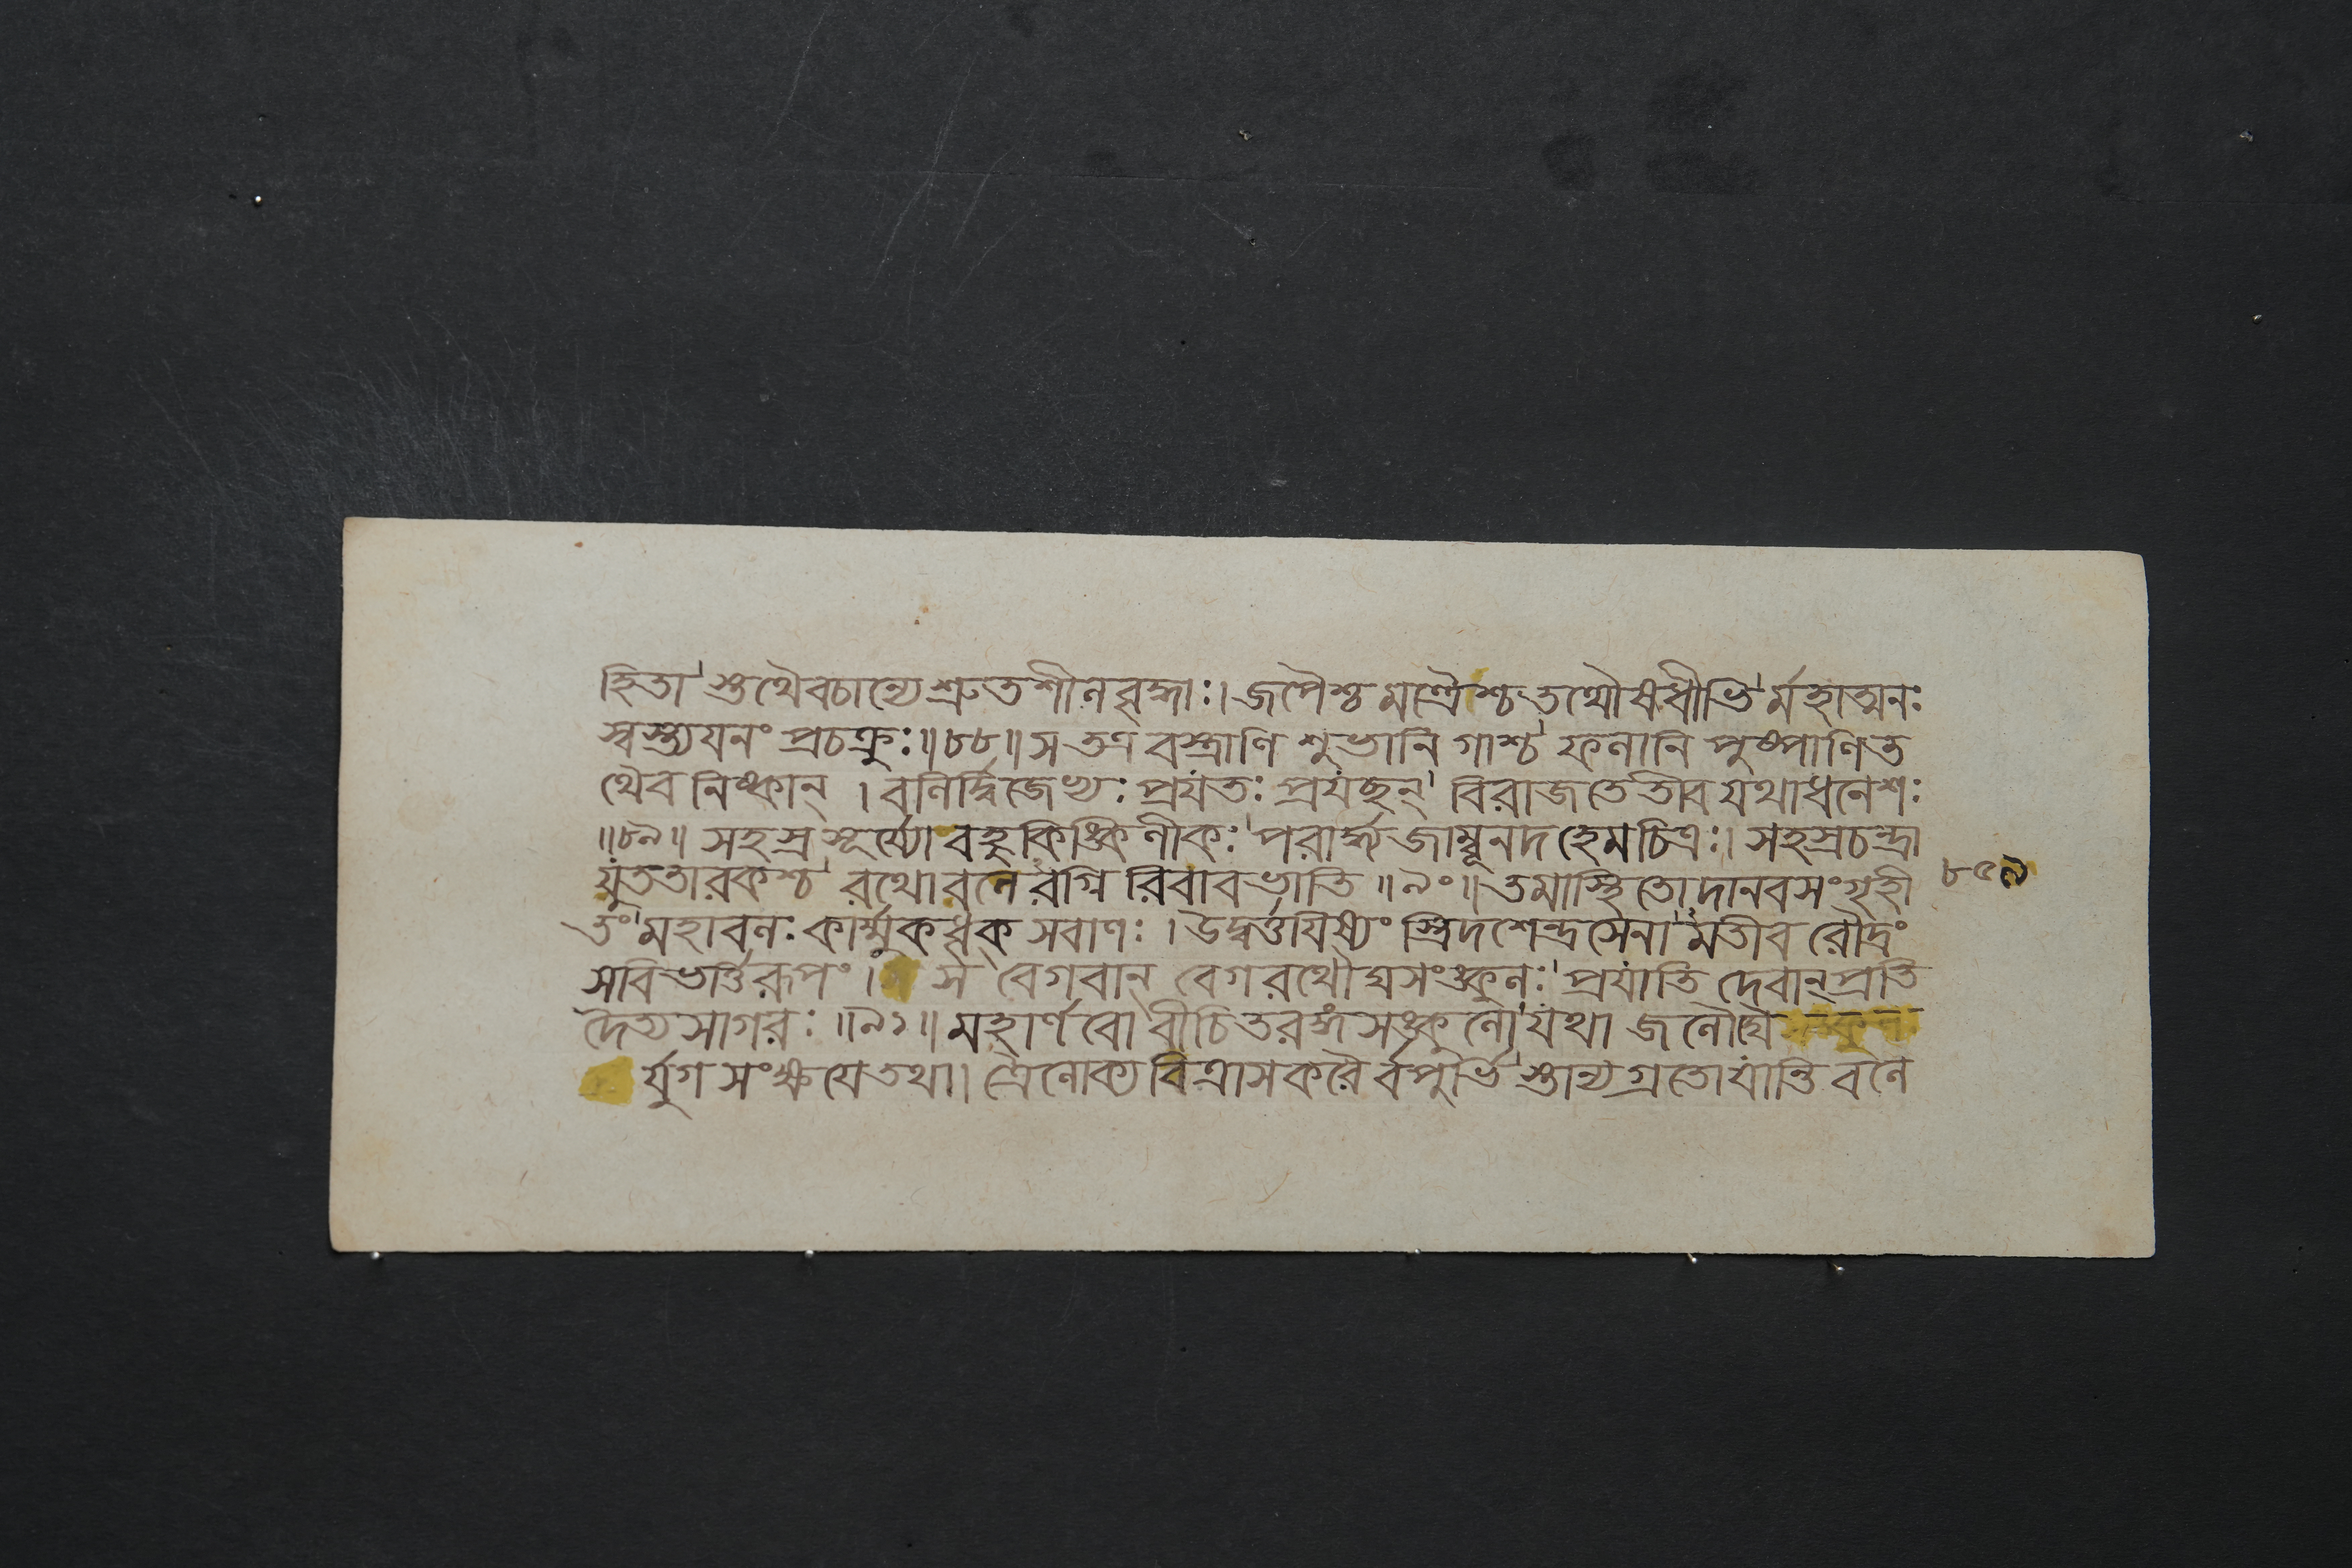 হিতা স্তথৈবচান্যে শ্রুতশীলবৃদ্ধাঃ। জপৈশ্চ মন্ত্রৈশ্চ তথৌষধীভি র্মহাত্মনঃ
স্বস্ত্যযনং প্রচক্রুঃ॥৮৮॥ স তত্র বস্ত্রাণি শুভানি গাশ্চ ফলানি পুষ্পাণি ত
থৈব নিষ্কান্ । বলির্দ্বিজেভ্যঃ প্রযতঃ প্রযছন্ বিরাজতেতীব যথাধনেশঃ
॥৮৯॥ সহস্রসূর্য্যো বহুকিঙ্কিণীকঃ পরার্দ্ধ্যজাম্বূনদহেমচিত্রঃ। সহস্রচন্দ্রা
যুততারকশ্চ রথোবলে রগ্নি রিবাবভাতি ॥৯০॥ তমাস্থিতো দানবসংগৃহী
তং মহাবলঃ কার্ম্মুকধৃক্ সবাণঃ । উদ্বর্ত্তযিষ্যং স্ত্রিদশেন্দ্রসেনা মতীব রৌদ্রং
সবিভর্ত্তিরূপং। স বেগবান্ বেগরথৌঘসংঙ্কুলঃ প্রযাতি দেবান্ প্রতি
দৈত্যসাগরঃ ॥৯১॥ মহার্ণবো বীচিতরঙ্গসঙ্কুলো যথা জলৌঘৈ
র্যুগসংক্ষযে তথা। ত্রৈলোক্যবিত্রাসকরৈ র্বপুর্ভি স্তান্যগ্রতো যান্তি বলে
৮৫৯